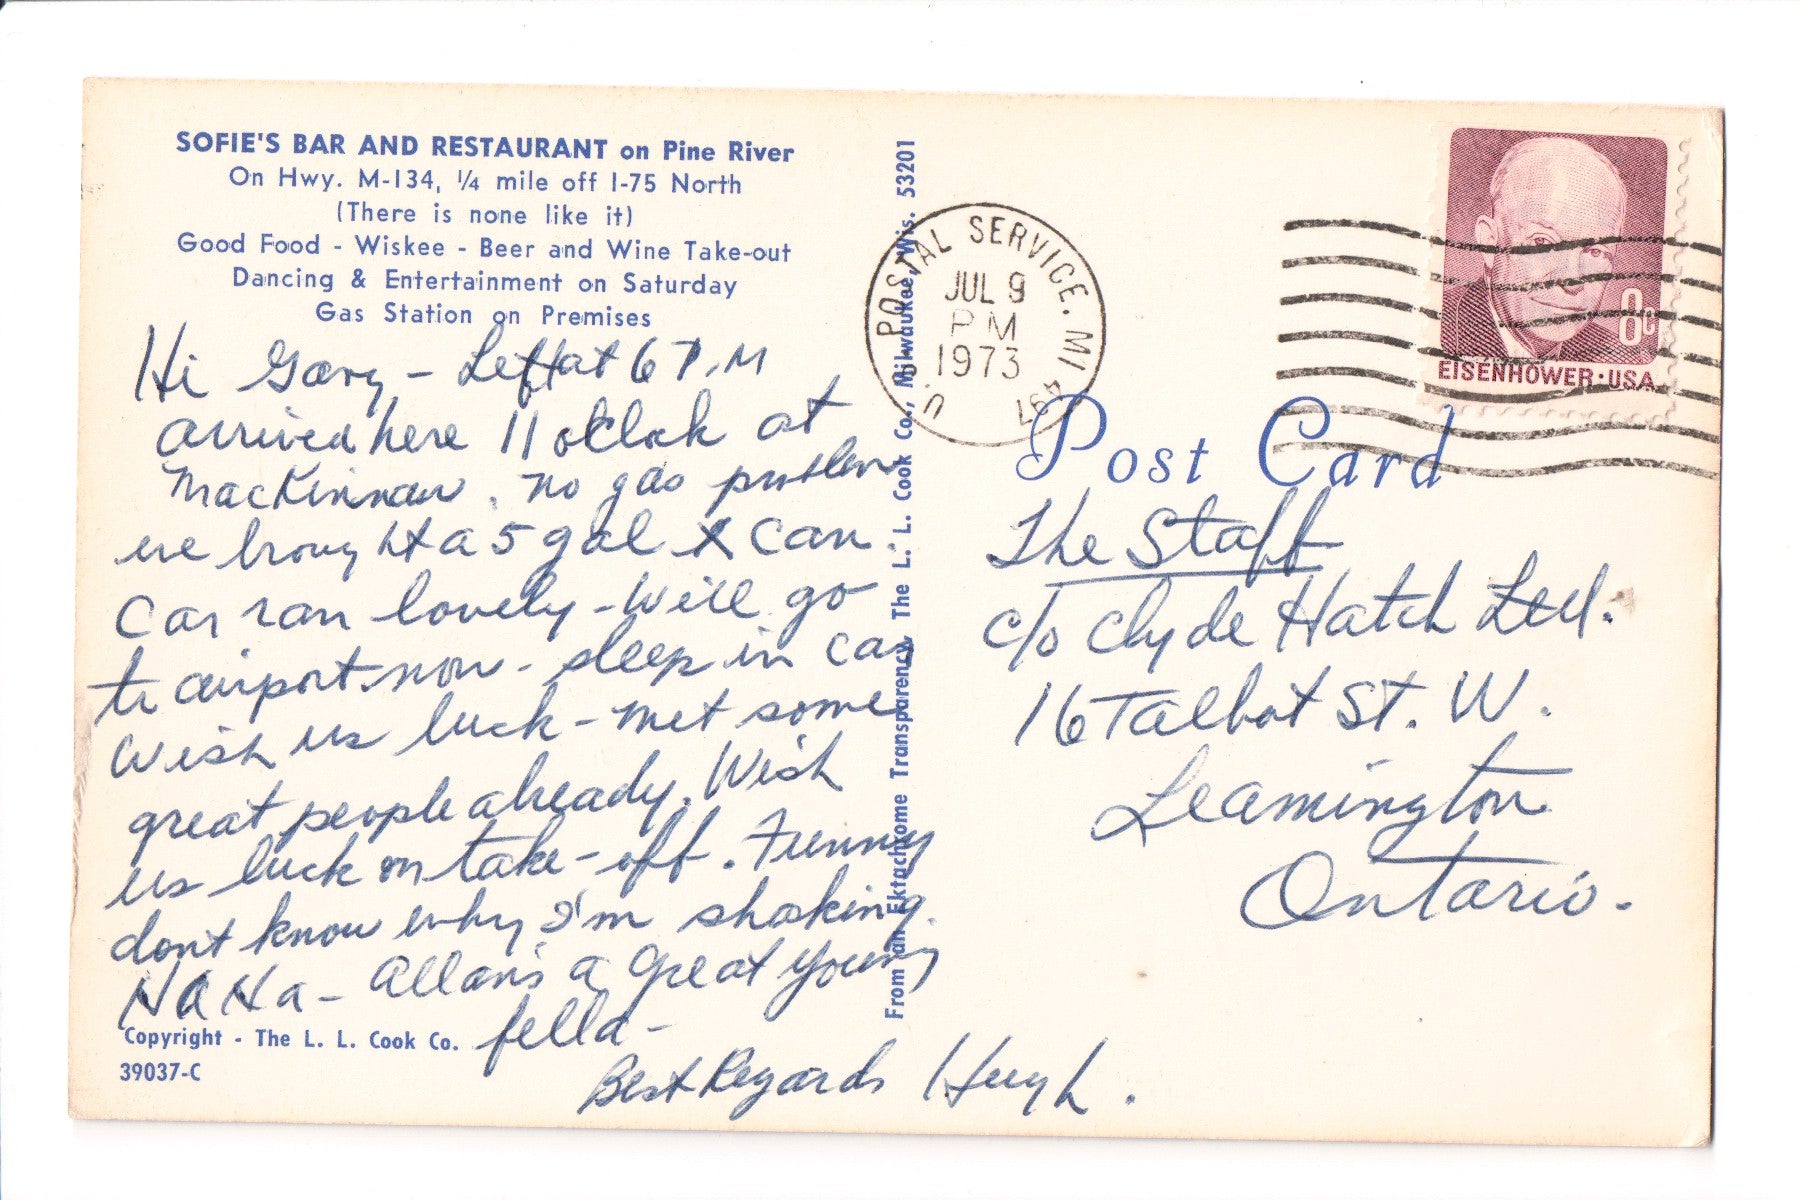 SOFIE'S BAR AND RESTAURANT on Pine River
On Hwy. M-134, 1/4 mile off I-75 North
(There is none like it)
Good Food - Wiskee - Beer and Wine Take-out
Dancing & Entertainment on Saturday
Gas Station on Premises
Hi Gary - Left at 6 P.M
arrived here 11 oClock at
MacKinnaw. no gas problem
we brought a 5 gal can.
Car ran lovely - Will go
to airport now - sleep in car
Wish us luck - met some
great people already. Wish
us luck on take-off. Funny
dont know why I'm shaking.
Ha Ha - Allan's a great young
fella -
Best Regards Hugh.
Copyright - The L. L. Cook Co.
39037-C
From an Ektachrome Transparency The L. L. Cook Co., Milwaukee, Wis. 53201
U. S. POSTAL SERVICE. MI 491
JUL 9
PM
1973
8c
EISENHOWER·USA
Post Card
The Staff
c/o Clyde Hatch Ltd.
16 Talbot St. W.
Leamington
Ontario.